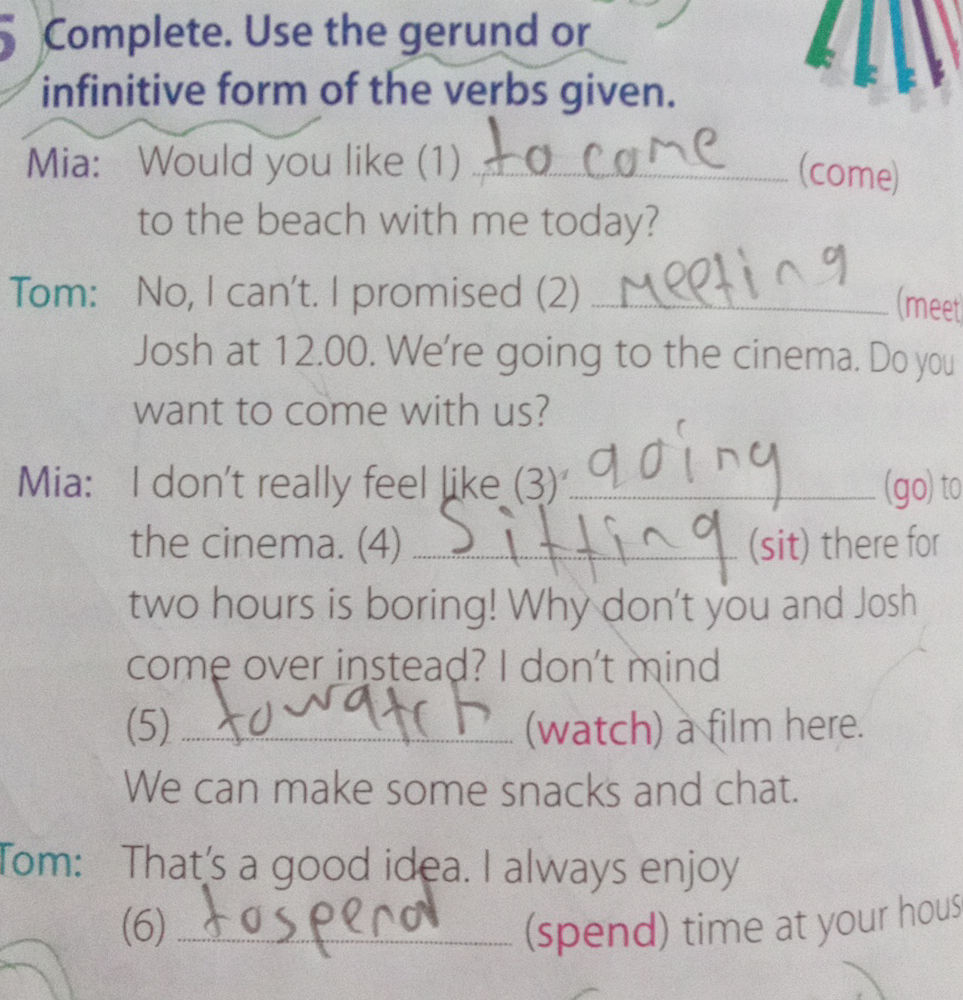 5 Complete. Use the gerund or
infinitive form of the verbs given.
Mia: Would you like (1) to come (come)
to the beach with me today?
Tom: No, I can't. I promised (2) Meeting (meet)
Josh at 12.00. We're going to the cinema. Do you
want to come with us?
Mia: I don't really feel like (3) going (go) to
the cinema. (4) Sitting (sit) there for
two hours is boring! Why don't you and Josh
come over instead? I don't mind
(5) to watch (watch) a film here.
We can make some snacks and chat.
Tom: That's a good idea. I always enjoy
(6) to spend (spend) time at your hous